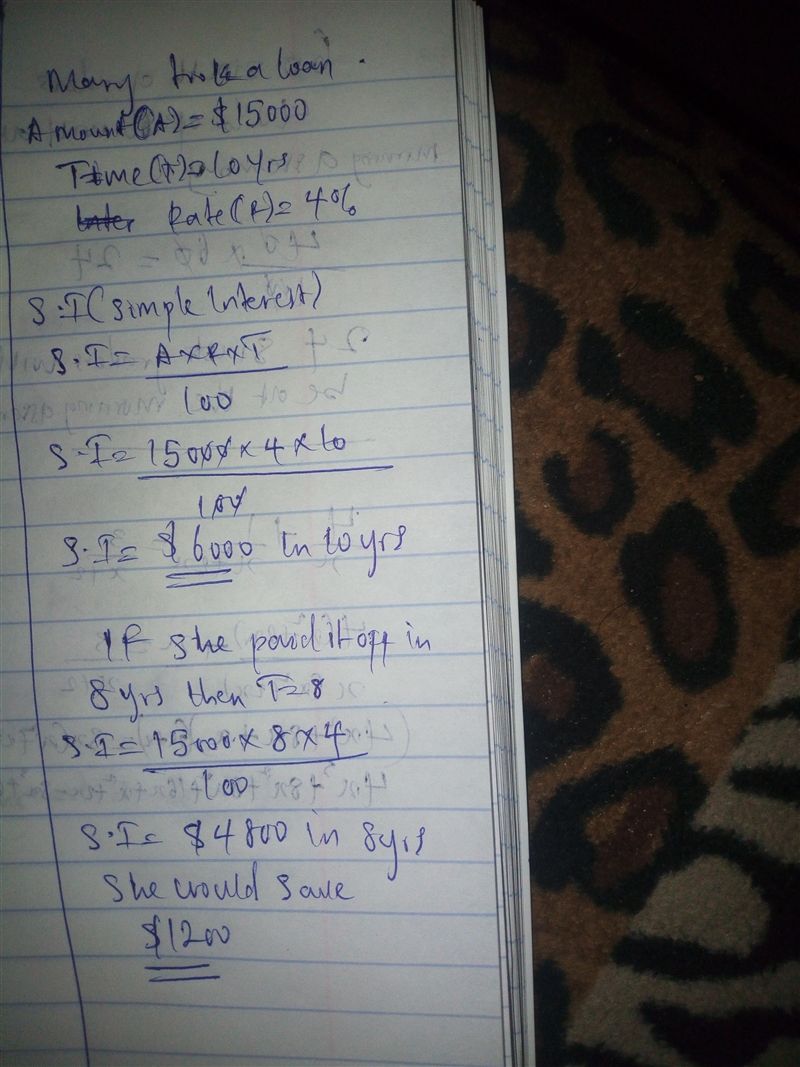 Mary took a loan.
Amount(A)= $15000
Time(T)= 10yrs
Rate(R)= 4%
S.I(simple Interest)
S.I= AxRxT
100
S.I= 15000 x 4 x 10
100
S.I= $6000 in 10yrs
If she paid it off in
8yrs then T=8
S.I= 15000 x 8 x 4
100
S.I= $4800 in 8yrs
She would save
$1200